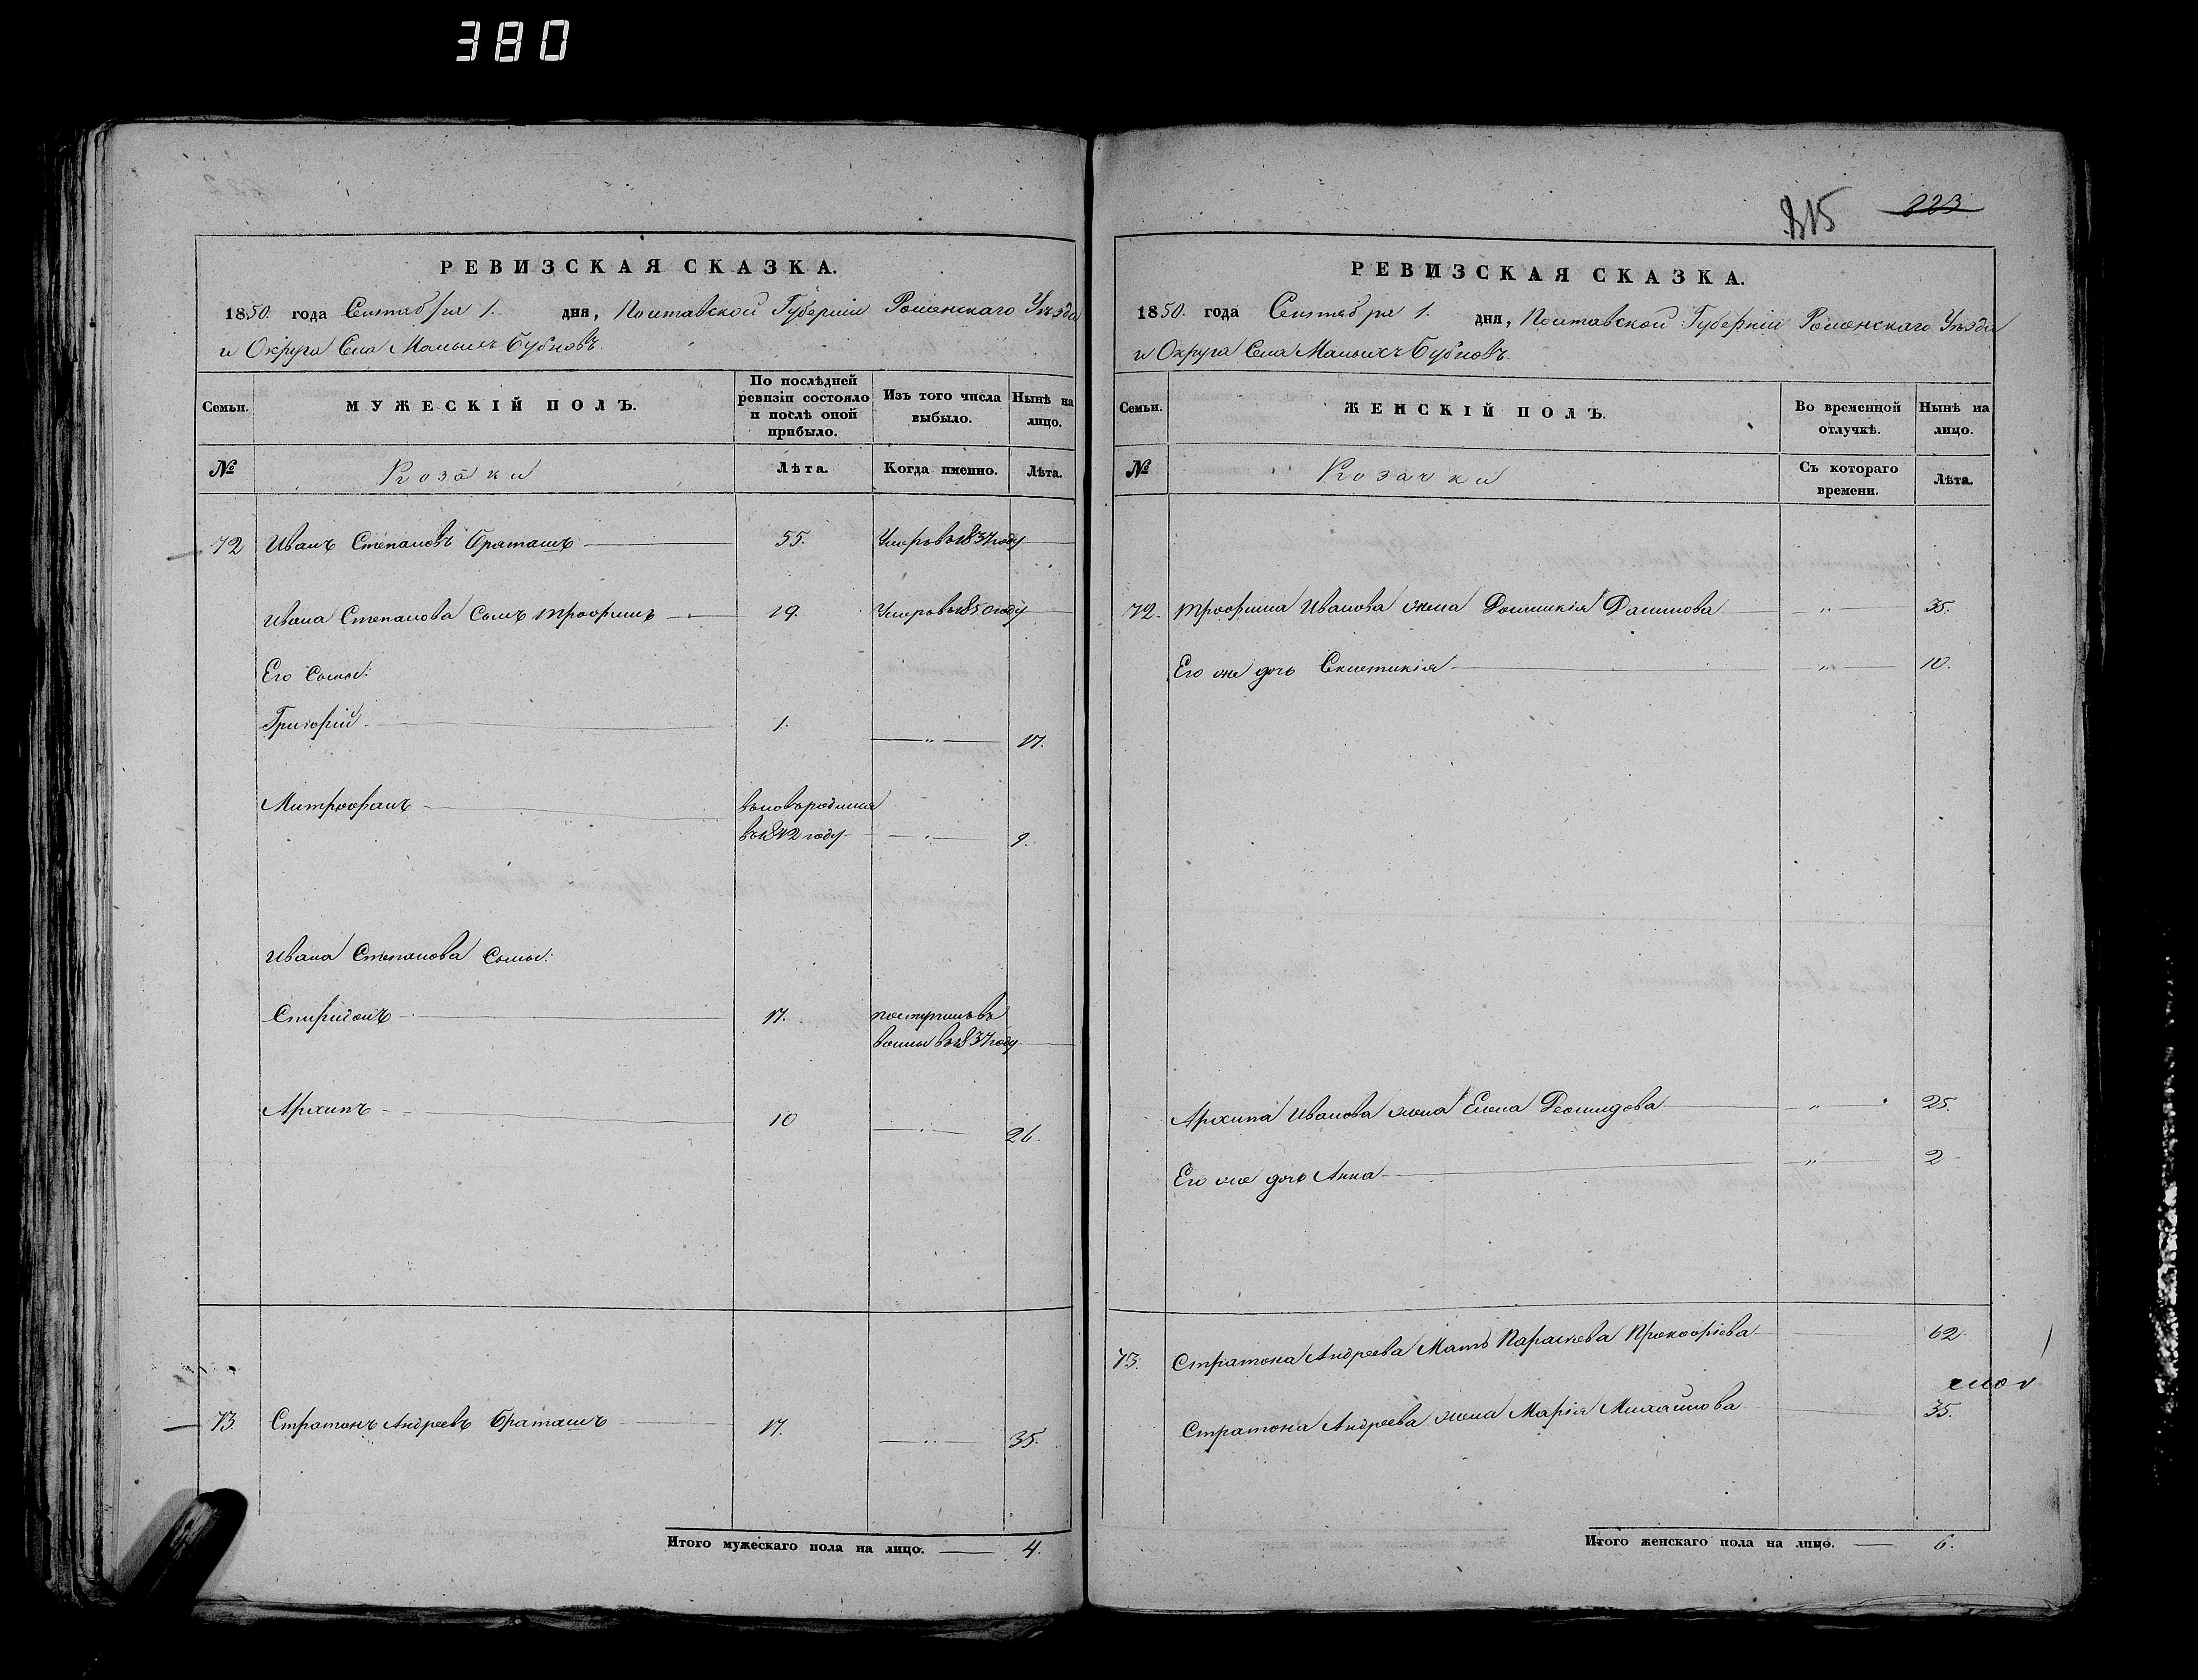 380
215 223
РЕВИЗСКАЯ СКАЗКА.
1850. года Сентября 1. дня, Полтавской Губерніи Роменскаго Уѣзда
и Округа Села Малыхъ Бубновъ
Семьи.
МУЖЕСКІЙ ПОЛЪ.
По послѣдней ревизіи состояло и послѣ оной прибыло.
Изъ того числа выбыло.
Нынѣ на лицо.
№
Козаки
Лѣта.
Когда именно.
Лѣта.
72 Иванъ Степановъ Браташъ 55. Умеръ въ 1837 году
Ивана Степанова Сынъ Трофимъ 19. Умеръ въ 1850 году
Его Сыны:
Григорій 1. " 17.
Митрофанъ вновьродился
въ 1842 году " 9.
Ивана Степанова Сыны:
Спиридонъ 17. поступилъ въ
воины въ 1837 году
Архипъ 10 " 26.
73. Стратонъ Андреевъ Браташъ 17. " 35.
Итого мужескаго пола на лицо. 4.
РЕВИЗСКАЯ СКАЗКА.
1850. года Сентября 1. дня, Полтавской Губерніи Роменскаго Уѣзда
и Округа Села Малыхъ Бубновъ
Семьи.
ЖЕНСКІЙ ПОЛЪ.
Во временной отлучкѣ.
Нынѣ на лицо.
№
Козачки
Съ котораго времени.
Лѣта.
72. Трофима Иванова жена Домникія Данилова " 35.
Его же дочь Синклитикія " 10.
Архипа Иванова жена Елена Демидова " 25.
Его же дочь Анна " 2
73. Стратона Андреева Мать Параскева Прокофіева 62.
Стратона Андреева жена Марія Михайлова 35.
Итого женскаго пола на лицо. 6.